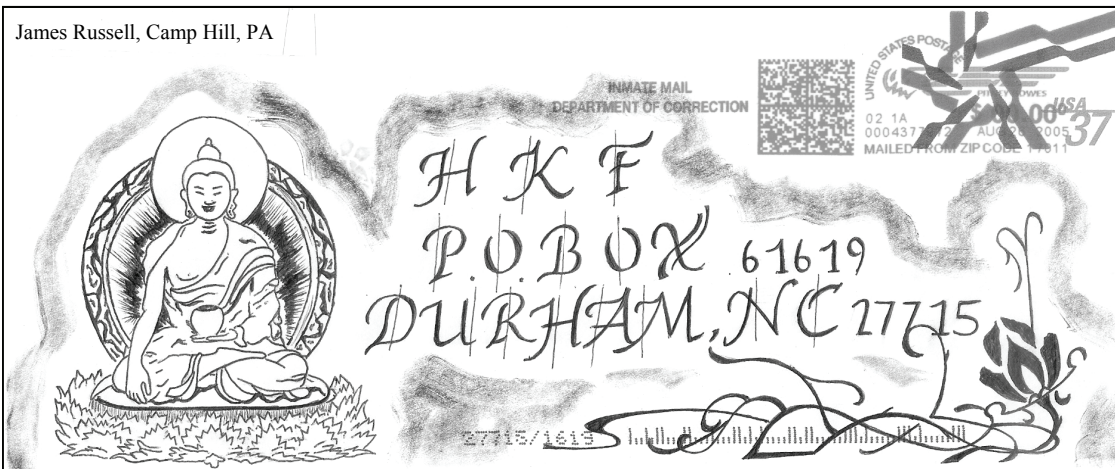 James Russell, Camp Hill, PA
INMATE MAIL
DEPARTMENT OF CORRECTION
UNITED STATES POSTAGE
PITNEY BOWES
USA
37
02 1A
AUG 2005
MAILED FROM ZIP CODE 17011
H K F
P.O. BOX 61619
DURHAM, NC 27715
27715/1619